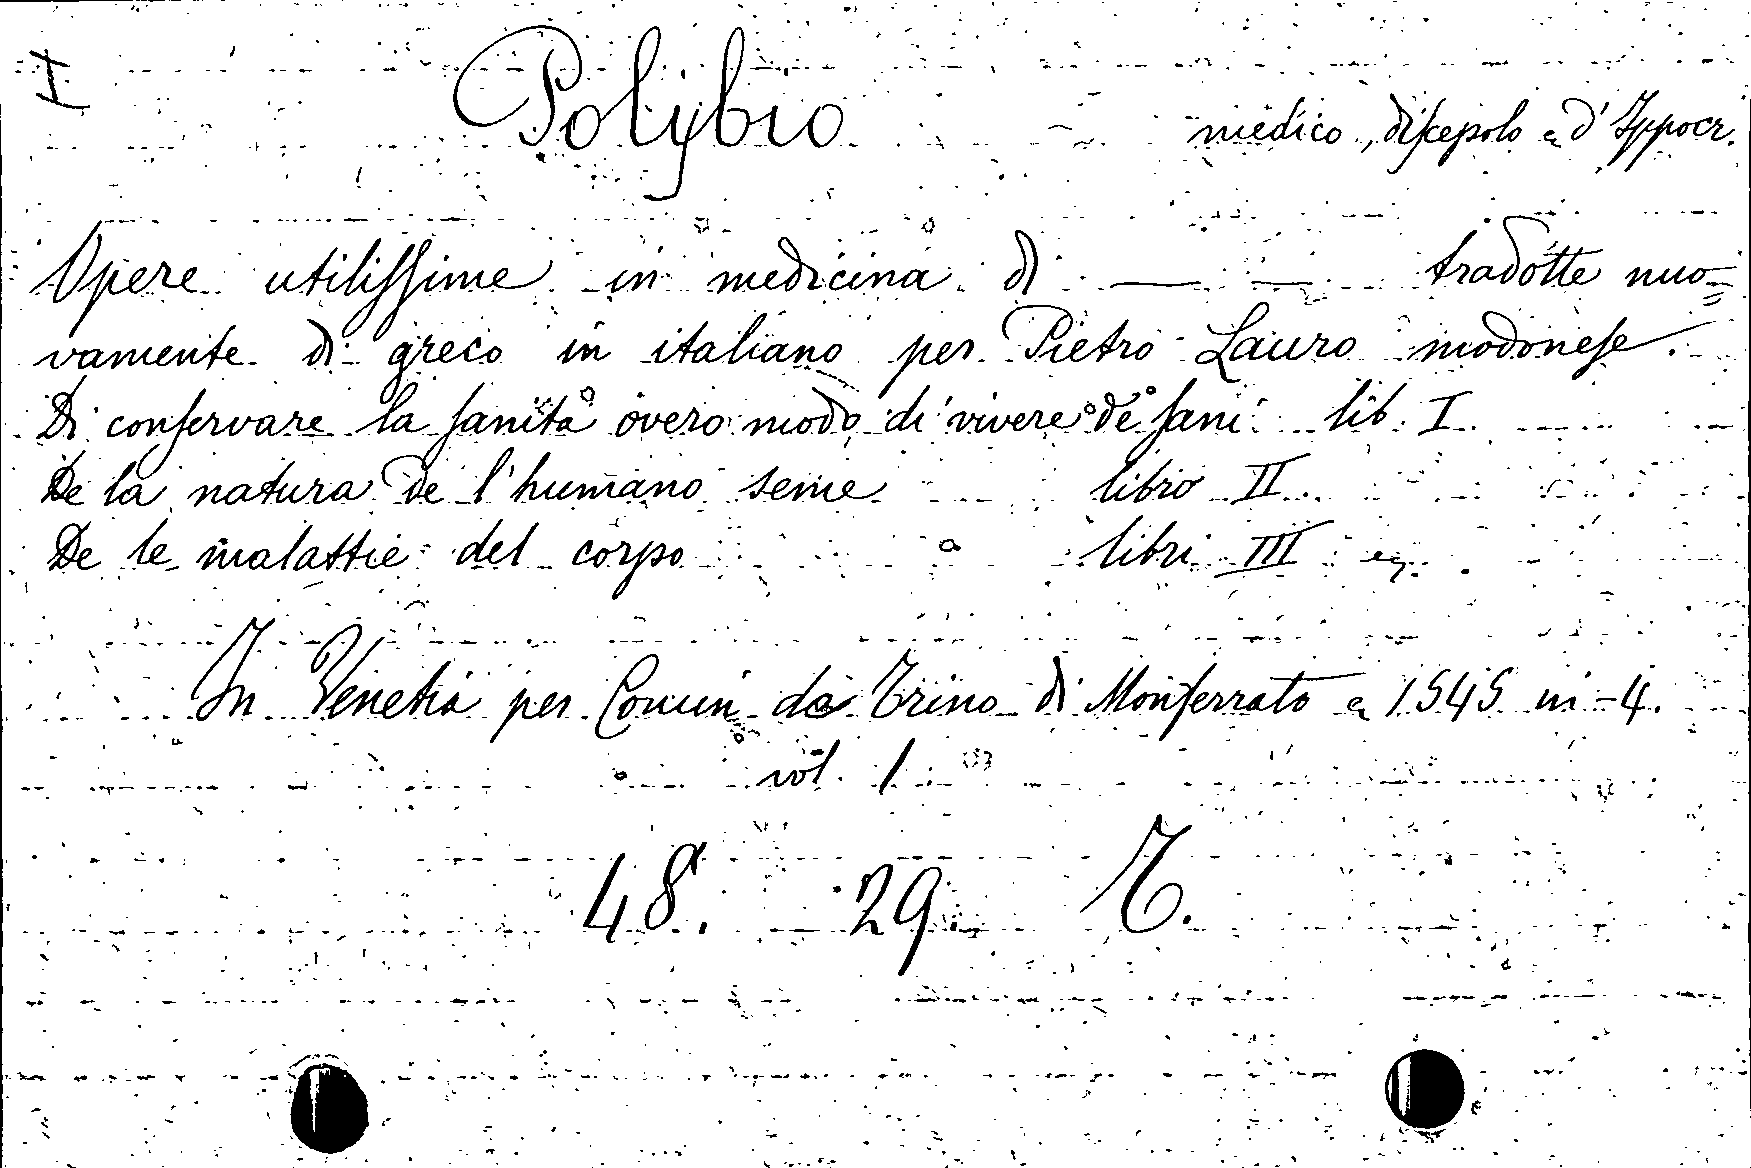 I
Polybio medico, discepolo d'Ippocr.
Opere utilissime in medicina di — — tradotte nuo=
vamente di greco in italiano per Pietro Lauro modonese.
Di conservare la sanità overo modo di vivere de sani lib. I
De la natura de l'humano seme libro II
De le malattie del corpo libri III
In Venetia per Comin da Trino di Monferrato 1545 in-4.
vol. 1
48. 29 T.